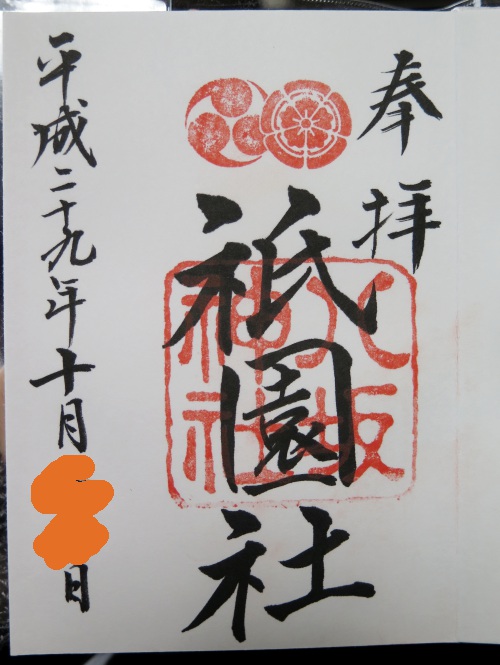 奉拝
祇園社
八坂神社
平成二十九年十月 日